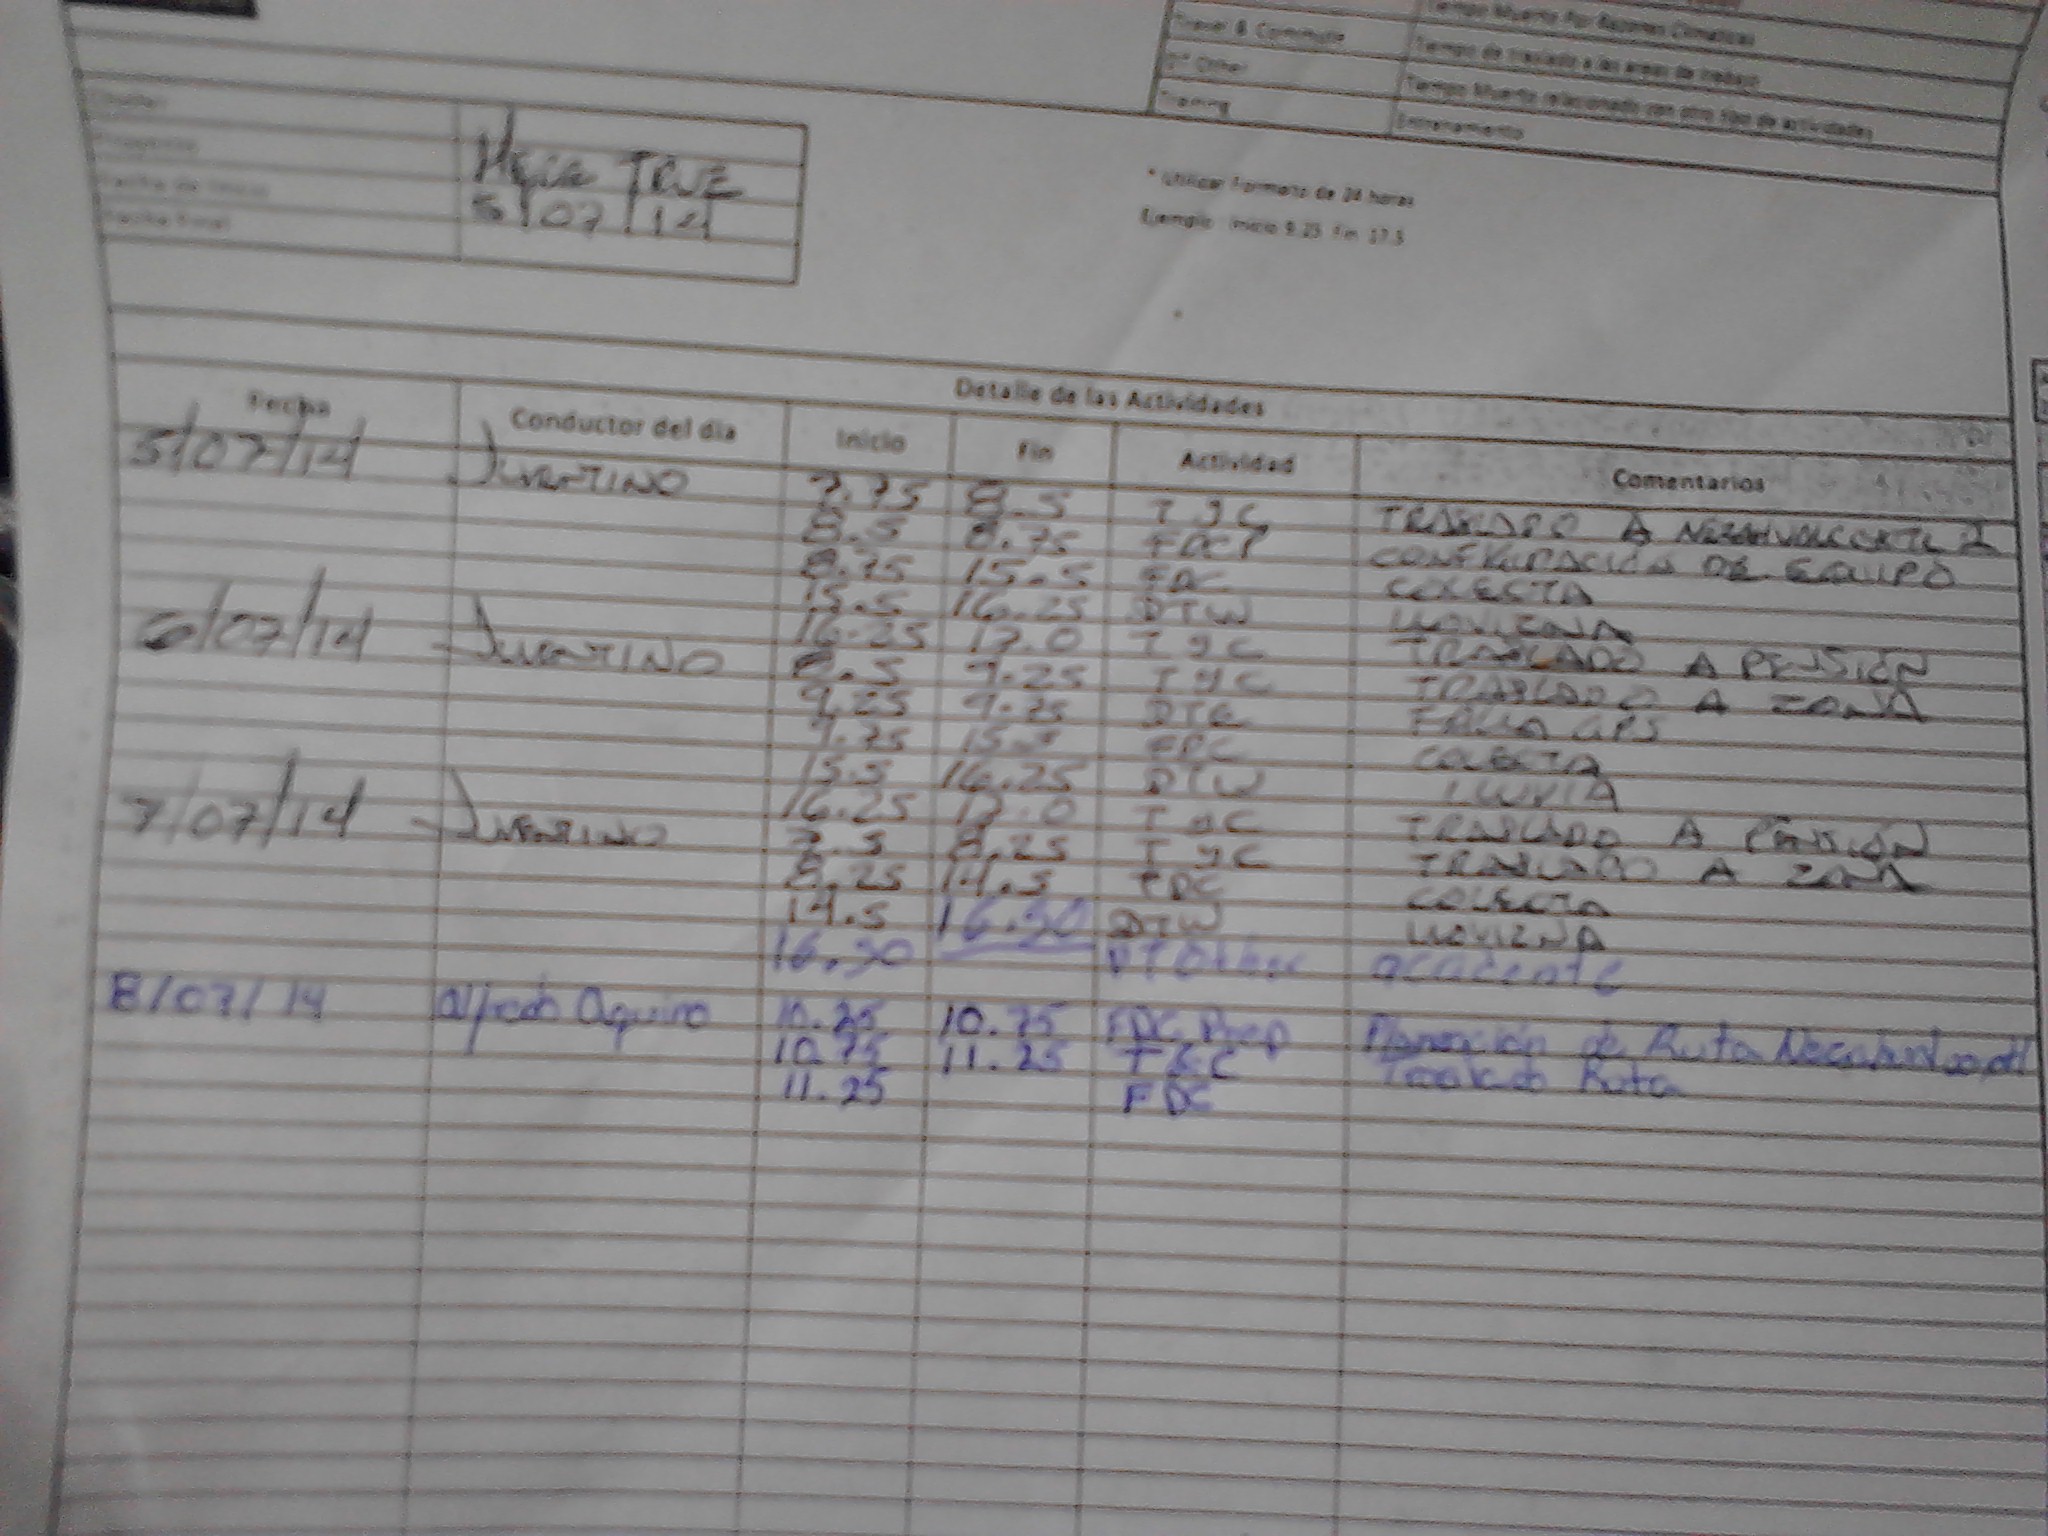 Tiempo Muerto Por Razones Climaticas
Travel & Commute Tiempo de traslado a las areas de trabajo
DT Other Tiempo Muerto relacionado con otro tipo de actividades
Training Entrenamiento
Proyecto
Fecha de Inicio 5/07/14
Fecha Final
* Utilizar Formato de 24 horas
Ejemplo Inicio 9.25 Fin 17.5
Detalle de las Actividades
Fecha Conductor del dia Inicio Fin Actividad Comentarios
5/07/14 JUVENTINO 7.75 8.5 T y C TRASLADO A
8.5 8.75 FDCP CONFIGURACIÓN DE EQUIPO
8.75 15.5 FDC COLECTA
15.5 16.25 DTW LLOVIZNA
16.25 17.0 T y C TRASLADO A PENSIÓN
6/07/14 JUVENTINO 8.5 9.25 T y C TRASLADO A ZONA
9.25 9.75 DTE FALLA GPS
9.75 15.5 FDC COLECTA
15.5 16.25 DTW LLUVIA
16.25 17.0 T y C TRASLADO A PENSIÓN
7/07/14 JUVENTINO 7.5 8.25 T y C TRASLADO A ZONA
8.25 14.5 FDC COLECTA
14.5 16.50 DTW LLOVIZNA
16.50 DT Other accidente
8/07/14 Alfredo Aquino 10.25 10.75 FDC Prep Planeación de Ruta
10.75 11.25 T & C Traslado Ruta
11.25 FDC